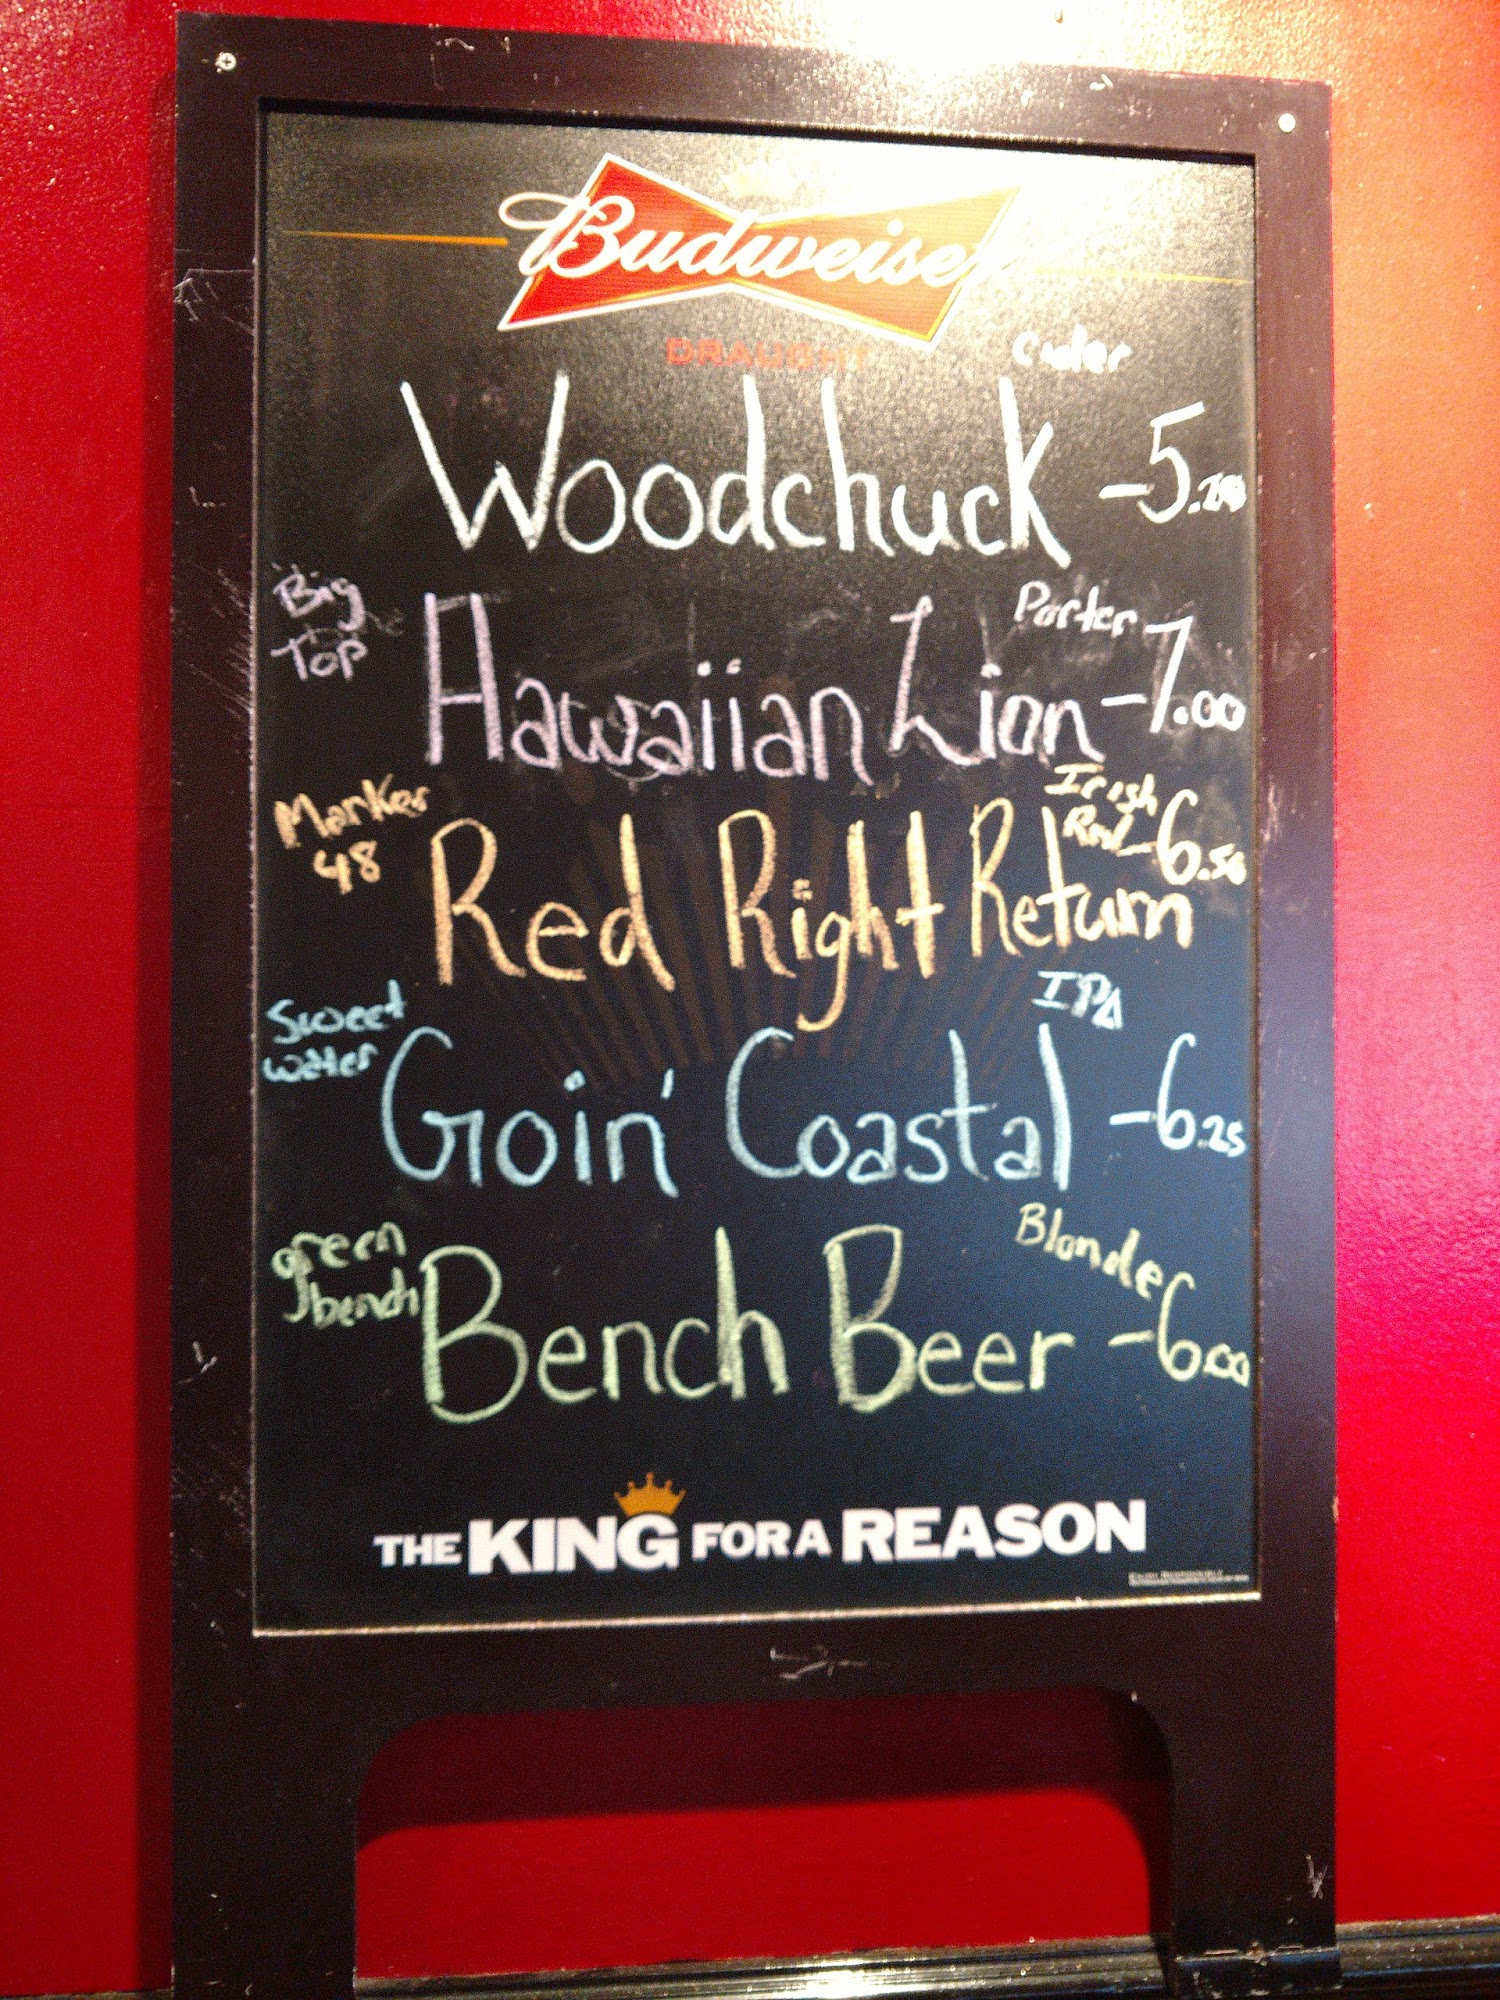 Budweiser
DRAUGHT
Cider
Woodchuck -5.
Big
Top
Porter
Hawaiian Lion -7.00
Marker
48
Irish
Red
Red Right Return -6.50
Sweet
water
IPA
Goin' Coastal -6.25
green
bench
Blonde
Bench Beer -6.00
THE KING FOR A REASON